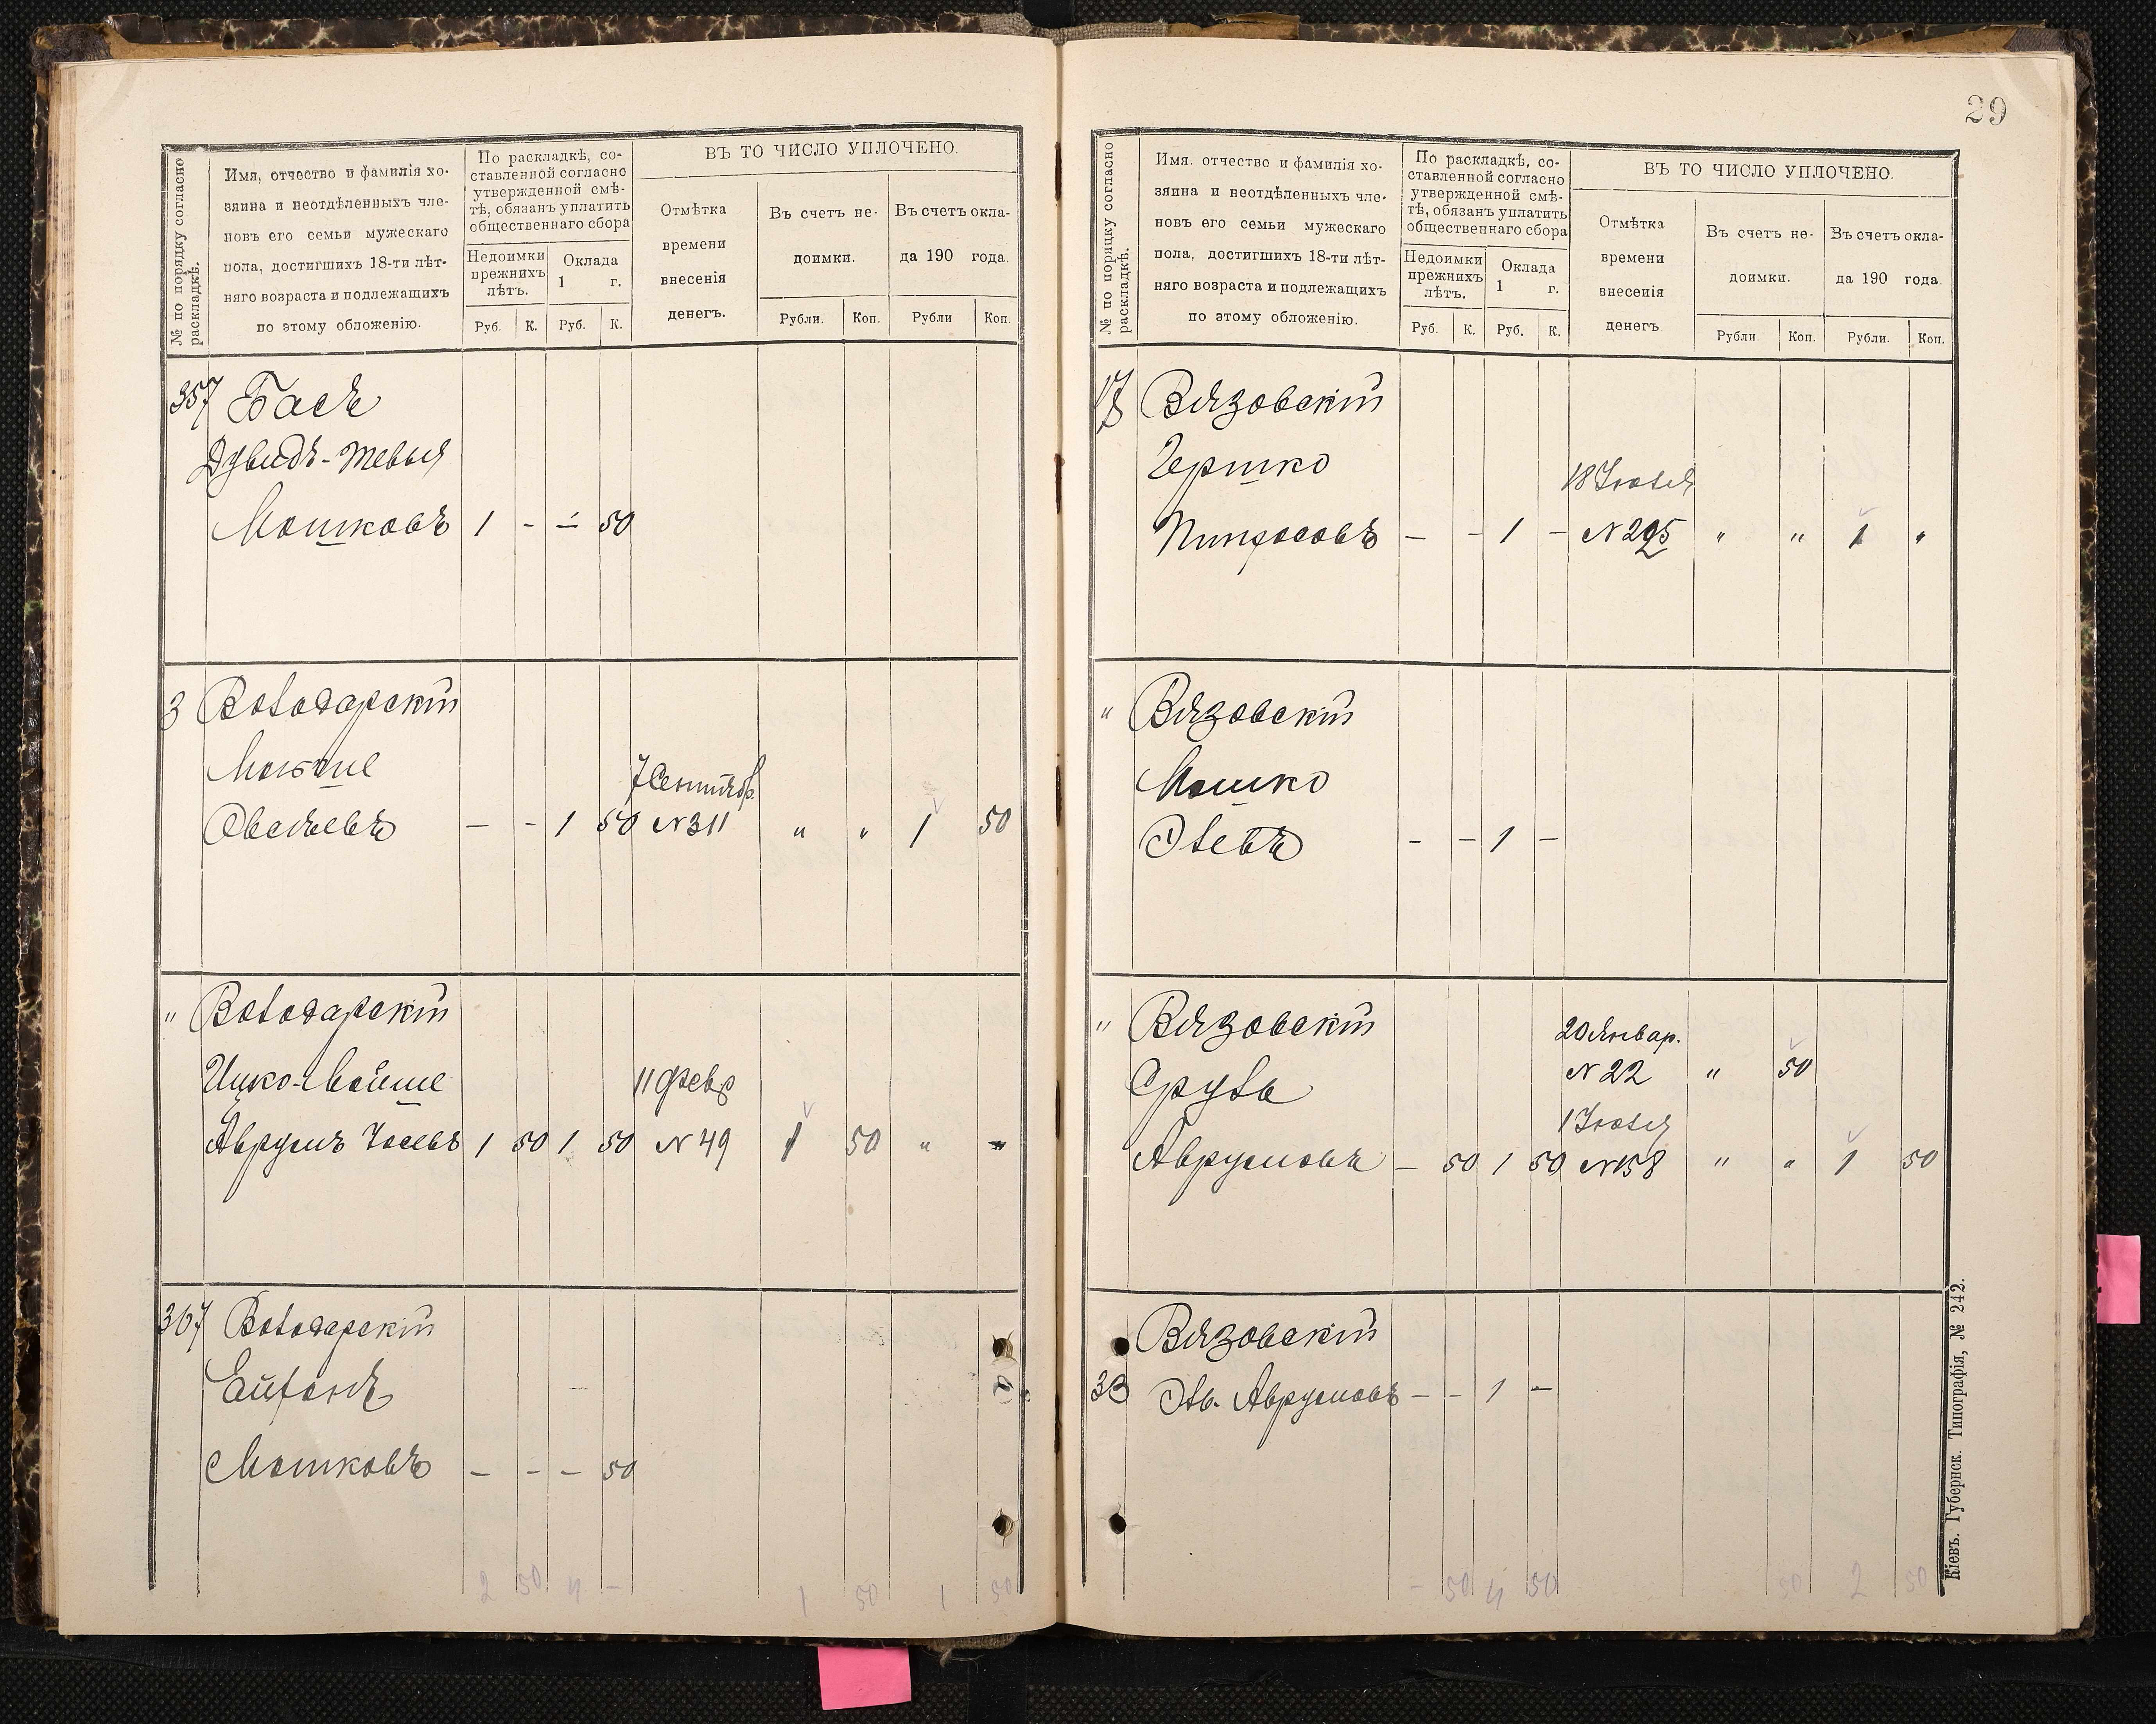 № по порядку согласно раскладкѣ.
Имя, отчество и фамилія хо-
зяина и неотдѣленныхъ чле-
новъ его семьи мужескаго
пола, достигшихъ 18-ти лѣт-
няго возраста и подлежащихъ
по этому обложенію.
По раскладкѣ, со-
ставленной согласно
утвержденной смѣ-
тѣ, обязанъ уплатить
общественнаго сбора
Недоимки
прежнихъ
лѣтъ.
Оклада
1 г.
Руб. К. Руб. К.
ВЪ ТО ЧИСЛО УПЛОЧЕНО.
Отмѣтка
времени
внесенія
денегъ.
Въ счетъ не-
доимки.
Въ счетъ окла-
да 190 года.
Рубли. Коп. Рубли Коп.
357 Басъ
Дувидъ-Тевья
Мошковъ 1 - - 50
3 Володарскій
Мойше
7 Сентябр.
Овсѣевъ — - 1 50 №311 " " 1 50
" Володарскій
Ицко-Мойше 11 Февр
Аврумъ Іосевъ 1 50 1 50 № 49 1 50 " "
367 Володарскій
Мошковъ — - — 50
2 50 4 - 1 50 1 50
29
№ по порядку согласно раскладкѣ.
Имя. отчество и фамилія хо-
зяина и неотдѣленныхъ чле-
новъ его семьи мужескаго
пола, достигшихъ 18-ти лѣт-
няго возраста и подлежащихъ
по этому обложенію.
По раскладкѣ, со-
ставленной согласно
утвержденной смѣ-
тѣ, обязанъ уплатить
общественнаго сбора
Недоимки
прежнихъ
лѣтъ.
Оклада
1 г.
Руб. К. Руб. К.
ВЪ ТО ЧИСЛО УПЛОЧЕНО.
Отмѣтка
времени
внесенія
денегъ.
Въ счетъ не-
доимки.
Въ счетъ окла-
да 190 года.
Рубли. Коп. Рубли. Коп.
Вязовскій
Гершко
18 Іюля
Пинфосовъ — - 1 - № 295 " " 1 "
" Вязовскій
Мошко
Элевъ - - 1 -
" Вязовскій
20 Январ.
Сруль № 22 " 50
1 Іюля
Аврумовъ - 50 1 50 №158 " " 1 50
Вязовскій
33 Эль Аврумовъ - - 1 -
- 50 4 50 50 2 50
Кіевъ. Губернск. Типографія, № 242.